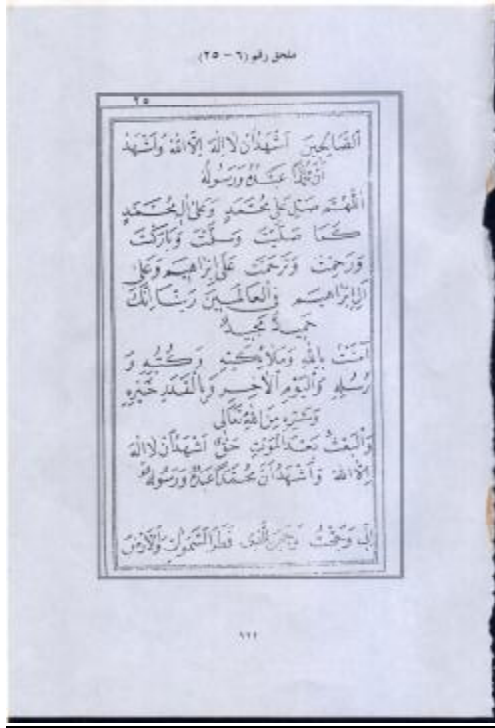 ملحق رقم (٦ - ٢٥)
٢٥
الصَّالِحِينَ اَشْهَدُ اَنْ لَا اِلٰهَ اِلَّا اللّٰهُ وَاَشْهَدُ
اَنَّ مُحَمَّدًا عَبْدُهُ وَرَسُولُهُ
اَللّٰهُمَّ صَلِّ عَلَى مُحَمَّدٍ وَعَلَى اٰلِ مُحَمَّدٍ
كَمَا صَلَّيْتَ وَسَلَّمْتَ وَبَارَكْتَ
وَرَحِمْتَ وَتَرَحَّمْتَ عَلَى اِبْرَاهِيمَ وَعَلَى
اٰلِ اِبْرَاهِيمَ فِي الْعَالَمِينَ رَبَّنَا اِنَّكَ
حَمِيدٌ مَجِيدٌ
اٰمَنْتُ بِاللّٰهِ وَمَلَائِكَتِهِ وَكُتُبِهِ وَ
رُسُلِهِ وَالْيَوْمِ الْاٰخِرِ وَبِالْقَدَرِ خَيْرِهِ
وَشَرِّهِ مِنَ اللّٰهِ تَعَالَى
وَالْبَعْثُ بَعْدَ الْمَوْتِ حَقٌّ اَشْهَدُ اَنْ لَا اِلٰهَ
اِلَّا اللّٰهُ وَاَشْهَدُ اَنَّ مُحَمَّدًا عَبْدُهُ وَرَسُولُهُ
اِنِّي وَجَّهْتُ وَجْهِيَ لِلَّذِي فَطَرَ السَّمٰوَاتِ وَالْاَرْضَ